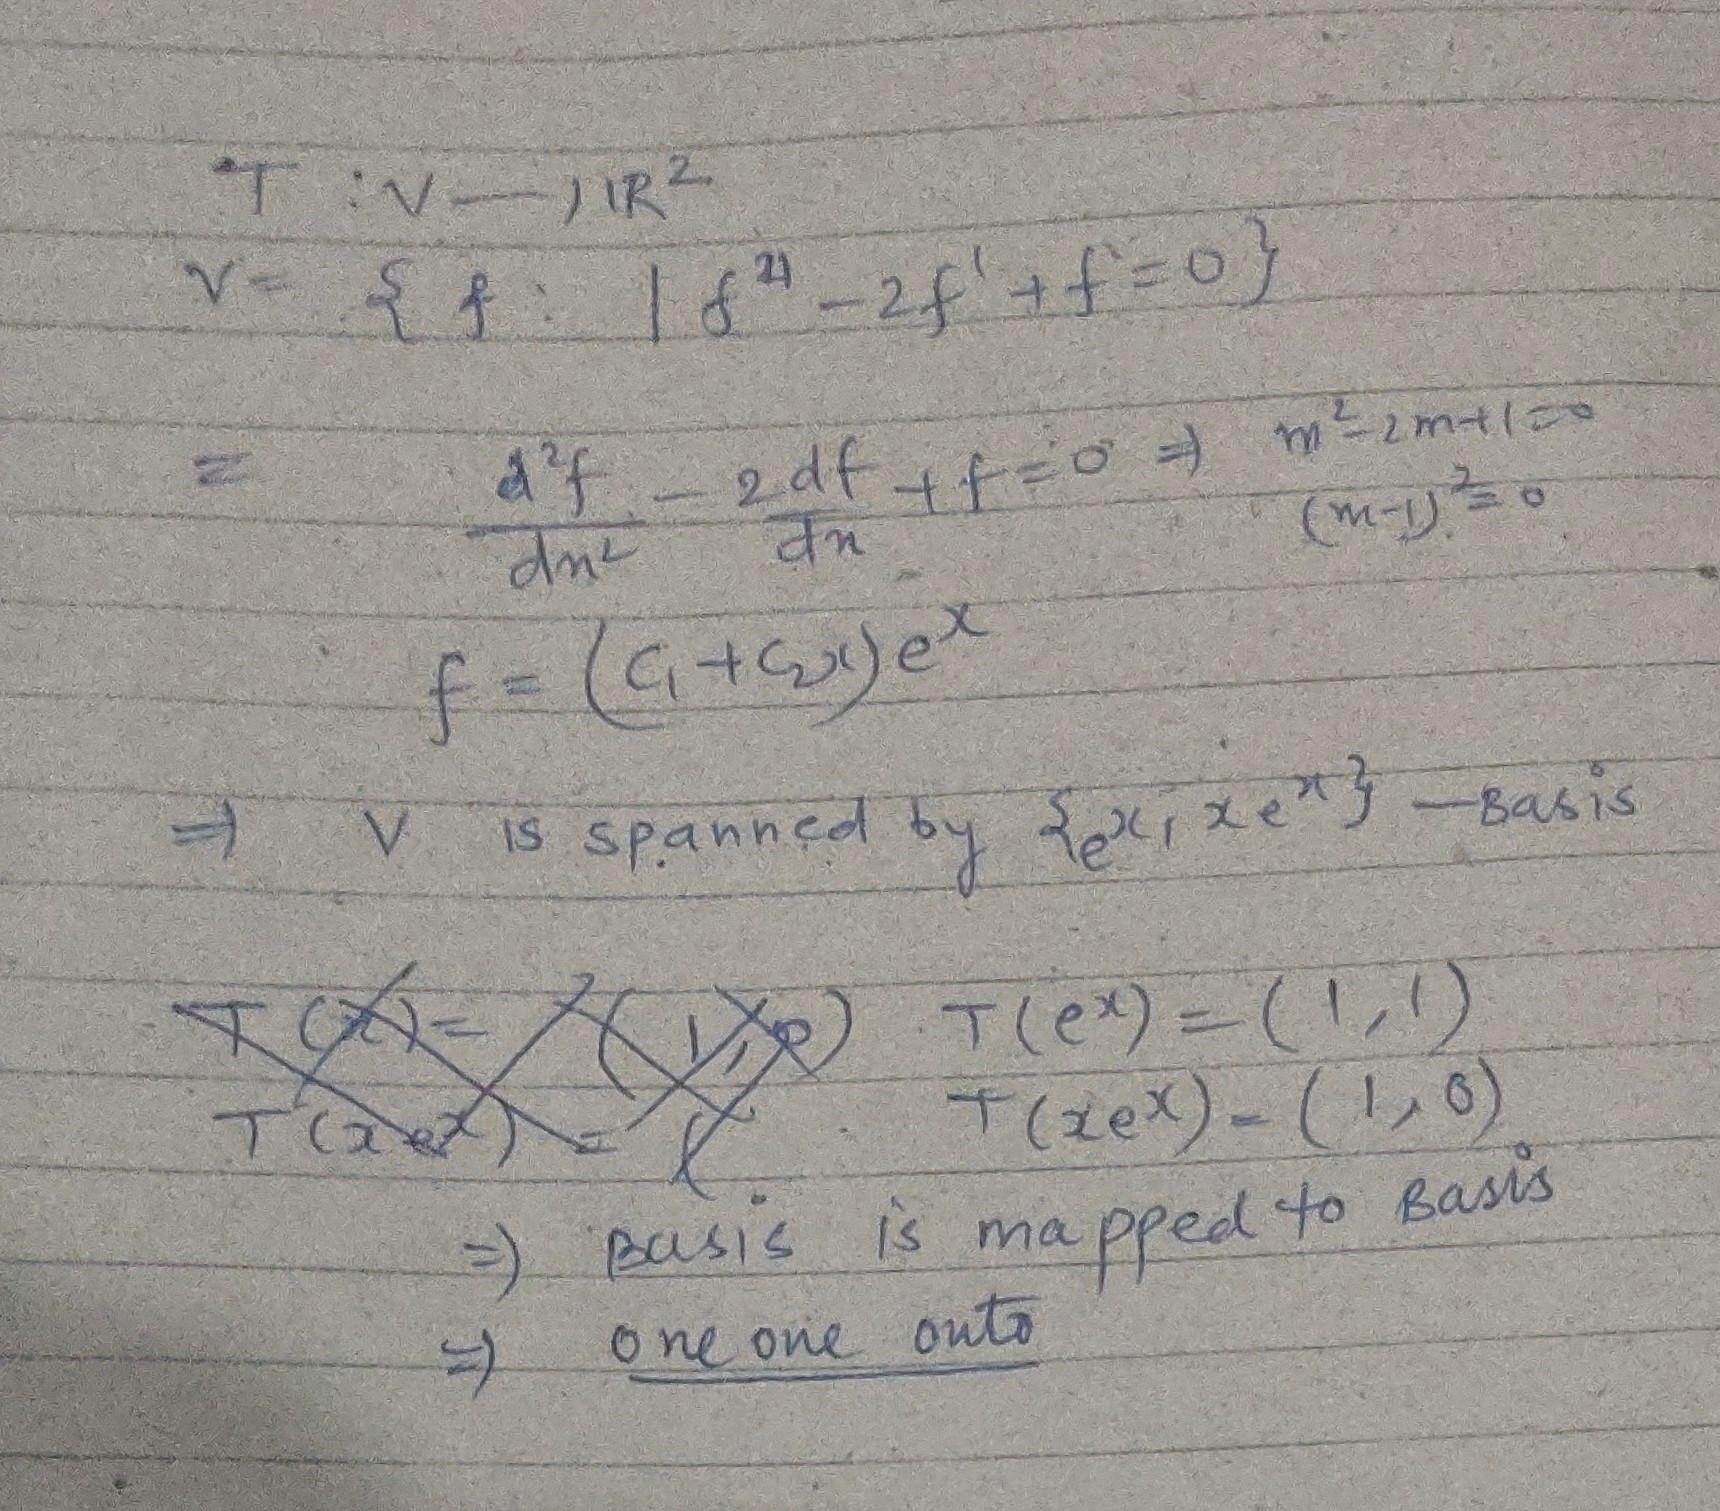 T : V → ℝ²
V = { f : | f'' - 2f' + f = 0 }
= d²f/dx² - 2 df/dx + f = 0 ⇒ m² - 2m + 1 = 0
(m-1)² = 0
f = (C₁ + C₂x) eˣ
⇒ V is spanned by {eˣ, xeˣ} - Basis
T(x) = (1, 0) T(eˣ) = (1, 1)
T(xeˣ) = ( T(xeˣ) = (1, 0)
⇒ Basis is mapped to Basis
⇒ one one onto